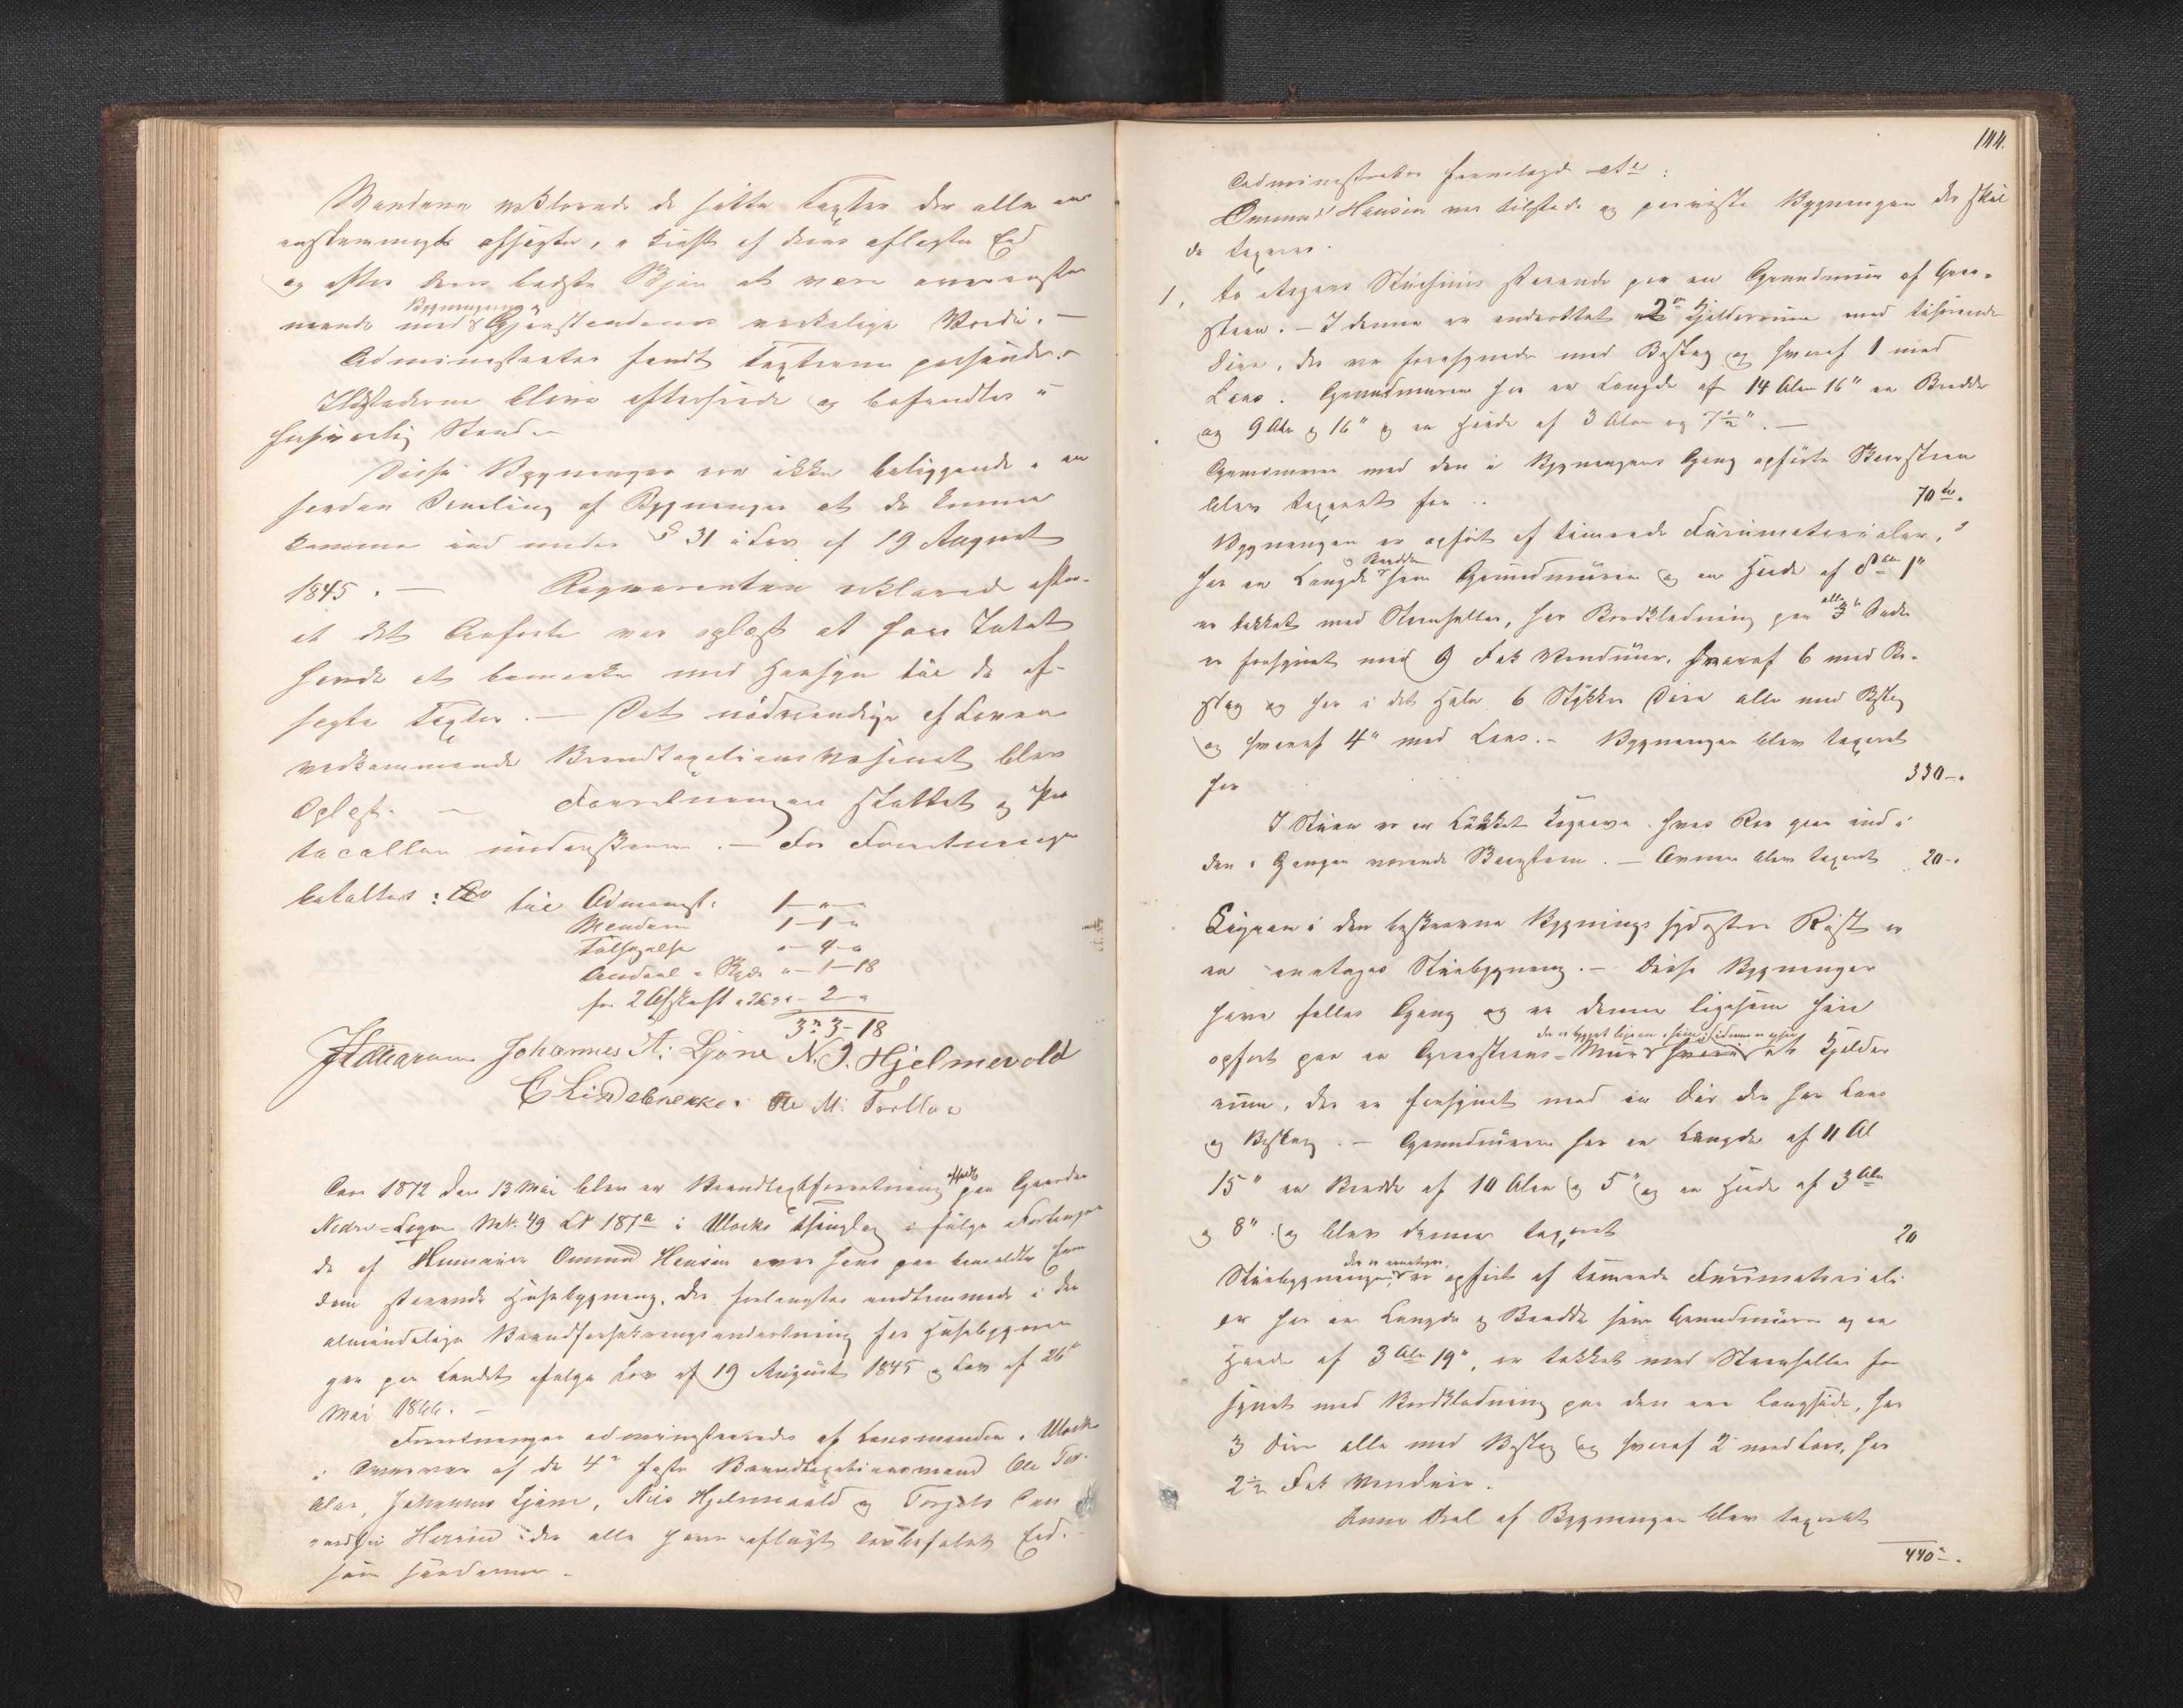 Mændene erklærede de satte Taxter der alle ere
enstemmigt afsagte, i Kraft af deres aflagte Eed
og efter deres bedste Skjøn at være overeenstem
Bygningens
mende med Gjenstandenes virkelige Værdi. —
Administrator fandt Taxterne passende. —
Ildstederne bleve efterseede og befandtes i
forsvarlig Stand. —
Disse Bygninger ere ikke beliggende i en
saadan Samling af Bygninger at de kunne
komme ind under § 31 i Lov af 19 August
1845. — Requirenten erklærede efter
at det Anførte var oplæst at han Intet
havde at bemærke med Hensyn til de af-
sagte Taxter. — Det nødvendige af Loven
vedkommende Brandtaxationsvæsenet blev
Oplæst. — Forretningen sluttet og Pro
tocollen underskreven. — For Forretningen
betaltes: til Administ: 1 — " —
Mændene 1 — 1 — "
Tilsigelse " — 4 — "
" — 1 — 18
for 2 Afskrift " — 2 — "
3 — 3 — 18
Johannes A: Ljöne N. J. Hjelmevold
Ole M:
Aar 1872 den 13 Mai blev en Brandtaxtforretning afholdt paa Gaarden
Nedre- Mat: 49 LN 187a i Thinglag i følge Forlangen
de af Ommund Hansen over hans paa bemeldte Eien
dom staaende Huusbygning, der forlangtes indlemmede i den
almindelige Brandforsikringsindretning for Huusbygnin
ger paa Landet ifølge Lov af 19 August 1845 og Lov af 26
Mai 1866. —
Forretningen administreredes af Lensmanden i
i Overvær af de 4 faste Brandtaxationsmænd Ole
Johannes Ljöne, Nils Hjelmevold og Torgils
der alle have aflagt lovbefalet Eed
som saadanne. —
144.
Administrator fremlagde
Ommund Hansen var tilstede og paaviste Bygningen der skul
de taxeres.
1, to etages Stuehuus staaende paa en Grundmuur af Graa-
steen. — I denne er indrettet 2 Kjelderrum med tilhørende
Døre, der er forsynede med Beslag og hvoraf 1 med
Laas. Grundmuren har en Længde af 14 Alen 16" en Bredde
og 9 Alen og 16" og en Høide af 3 Alen og 7½". —
Grundmuren med den i Bygningens Gang opførte Skorsteen
blev taxeret for 70
Bygningen er opført af tømrede Furumaterialer,
og Bredde
har en Længde som Grundmuren og en Høide af 8 Al 1"
er tækket med Steenheller, har Bordklædning paa alle 3 Sider
er forsynet med 9 Fak Vinduer, hvoraf 6 med Be-
slag og har i det Hele 6 Stykker Døre alle med Beslag
og hvoraf 4 med Laas. — Bygningen blev taxeret
for 330 —
I Stuen er en Kogeovn hvis Rør gaar ind i
den i Gangen værende Skorsteen. — Ovnen blev taxeret 20 —
Ligeen i den beskrevne Bygnings sydostre Røst er
en enetages Stuebygning. — Disse Bygninger
have fælles Gang og er denne ligesom hiin
opført paa en Graasteens-Muur et Kjelder
rum, der er forsynet med en Dør der har Laas
og Beslag. — Grundmuren har en Længde af 11 Al
15" en Bredde af 10 Alen og 5" og en Høide af 3 Al
og 8" og blev denne taxeret 20
der er enetages,
Stuebygningen er opført af tømrede Furumateriali
er har en Længde og Bredde som Grundmuren og en
Høide af 3 Al 19", er tækket med Steenheller for
synet med Bordklædning paa den ene Langside, har
3 Døre alle med Beslag og hvoraf 2 med Laas, har
2½ Fak Vinduer.
Denne Deel af Bygningen blev taxeret
440 —